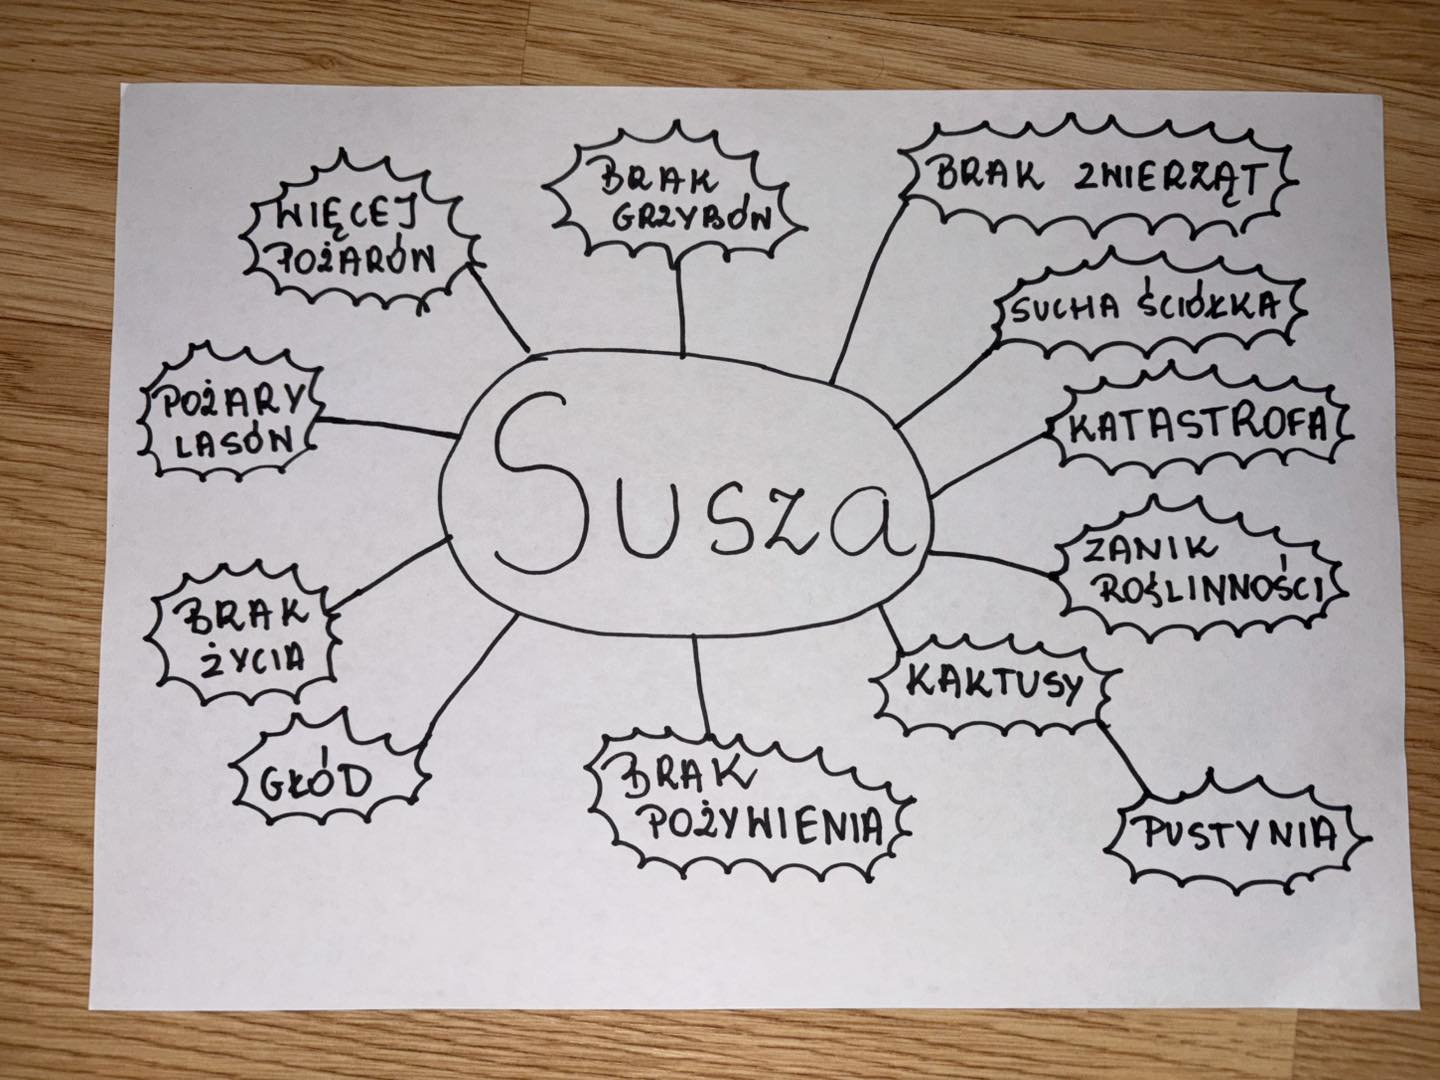 WIĘCEJ
POŻARÓW
BRAK
GRZYBÓW
BRAK ZWIERZĄT
SUCHA ŚCIÓŁKA
KATASTROFA
ZANIK
ROŚLINNOŚCI
KAKTUSY
PUSTYNIA
BRAK
POŻYWIENIA
GŁÓD
BRAK
ŻYCIA
POŻARY
LASÓW
Susza